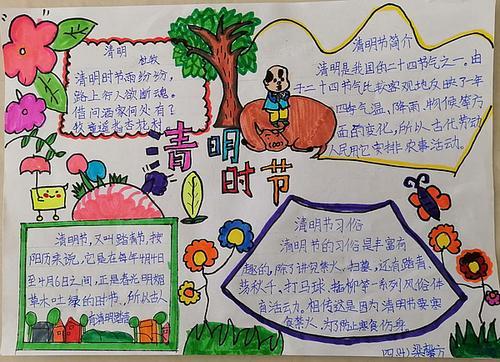 清明
杜牧
清明时节雨纷纷，
路上行人欲断魂。
借问酒家何处有？
牧童遥指杏花村
清明时节
清明节简介
清明是我国的二十四节气之一。由
于二十四节气比较客观地反映了一年
四季气温、降雨、物候等方
面的变化，所以古代劳动
人民用它安排农事活动。
清明节，又叫踏青节，按
阳历来说，它是在每年4月4日
至4月6日之间，正是春光明媚
草木吐绿的时节，所以古人
有清明踏青
清明节习俗
清明节的习俗是丰富有
趣的，除了讲究禁火、扫墓，还有踏青、
荡秋千、打马球、插柳等一系列风俗体
育活动。相传这是因为清明节要寒
食禁火，为了防止寒食伤身，
四